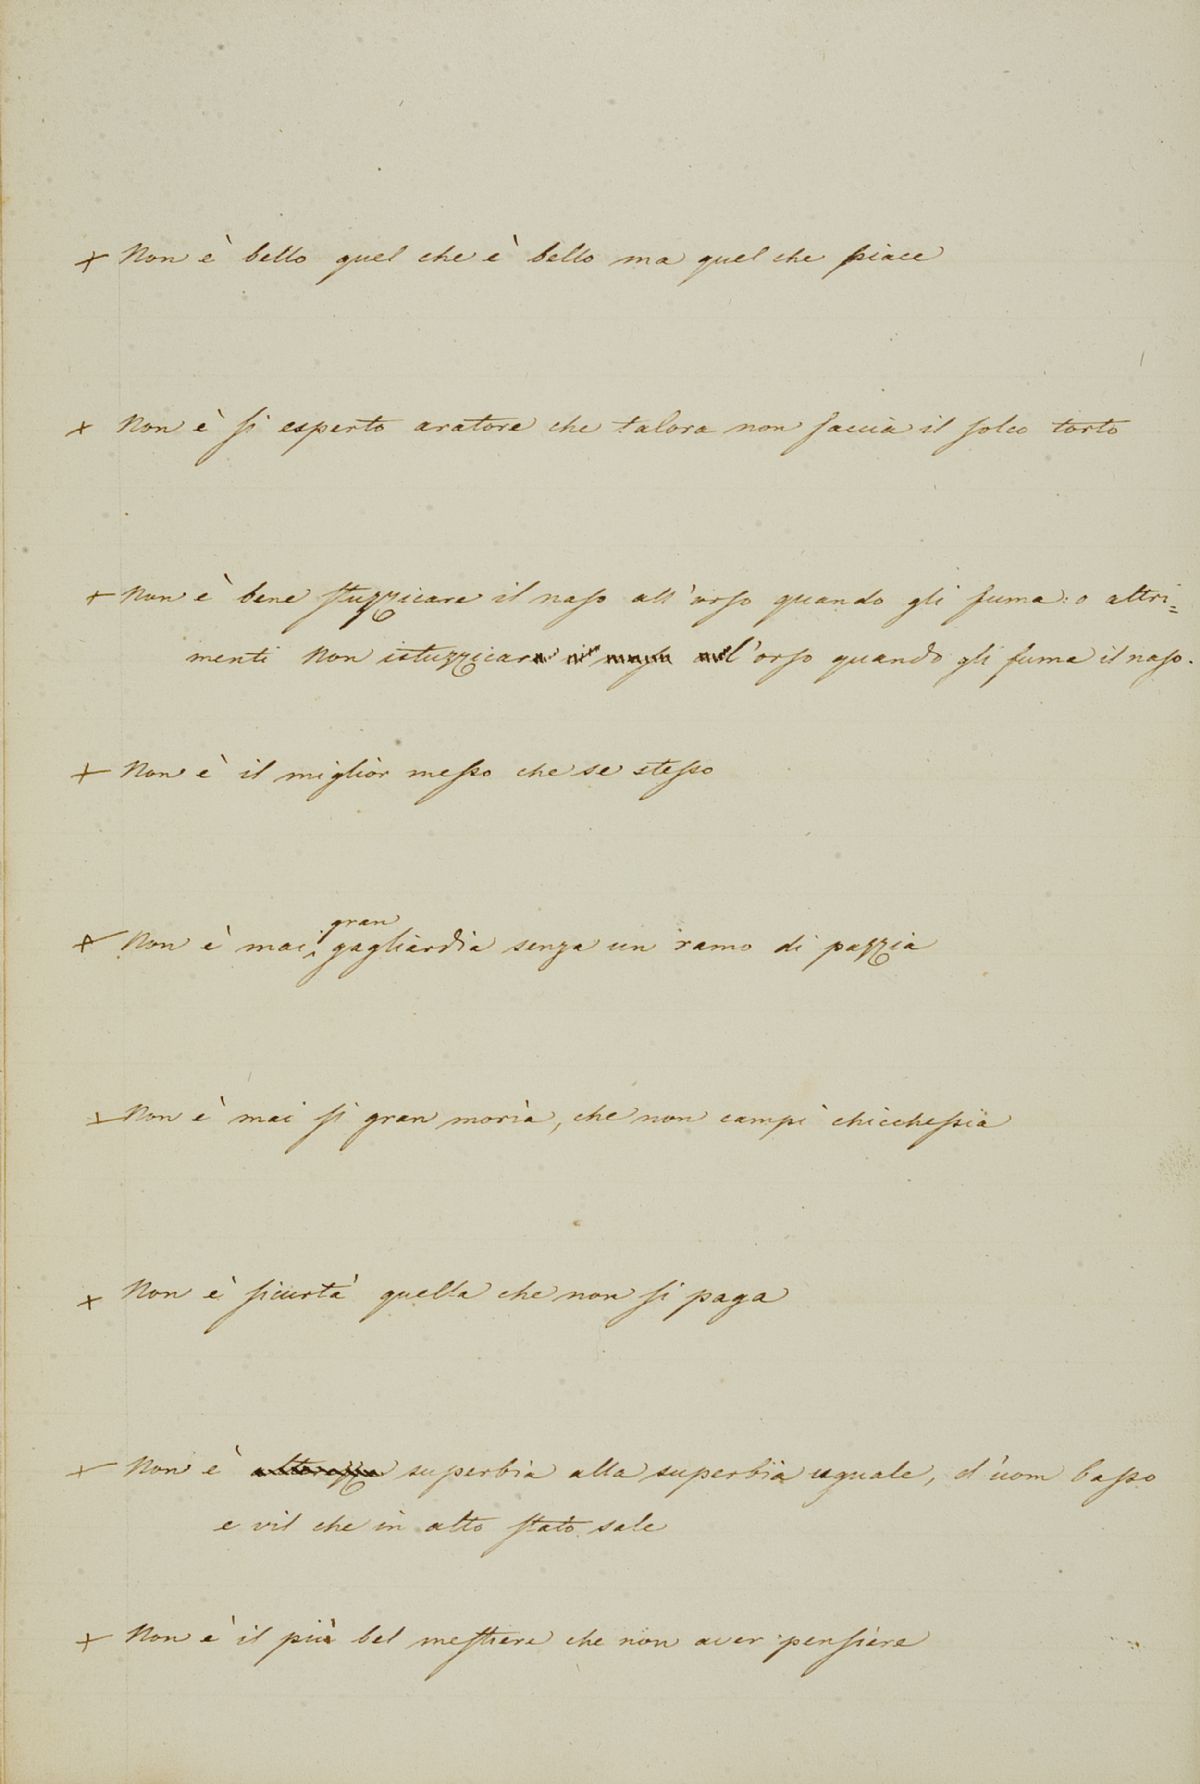 + Non è bello quel che è bello ma quel che piace
+ Non è si esperto aratore che talora non faccia il solco torto
+ Non è bene stuzzicare il naso all'orso quando gli fuma: o altri=
menti Non istuzzicar l'orso quando gli fuma il naso.
+ Non è il miglior messo che se stesso
gran
+ Non è mai gagliardia senza un ramo di pazzia
+ Non è mai si gran morìa, che non campi chicchessia
+ Non è sicurtà quella che non si paga
+ Non è superbia alla superbia uguale, d'uom basso
e vil che in alto stato sale
+ Non è il più bel mestiere che non aver pensiere